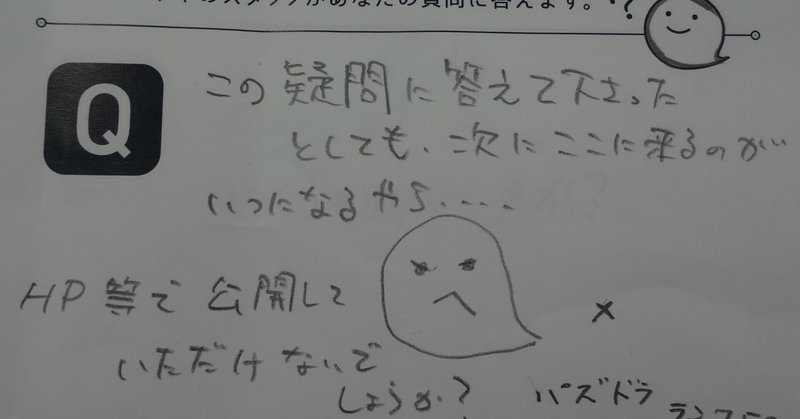 のスタッフがあなたの質問に答えます。
?
Q
この疑問に答えて下さった
としても、次にここに来るのが
いつになるやら.....
HP等で公開して
いただけないで
しょうか?
パズドラ